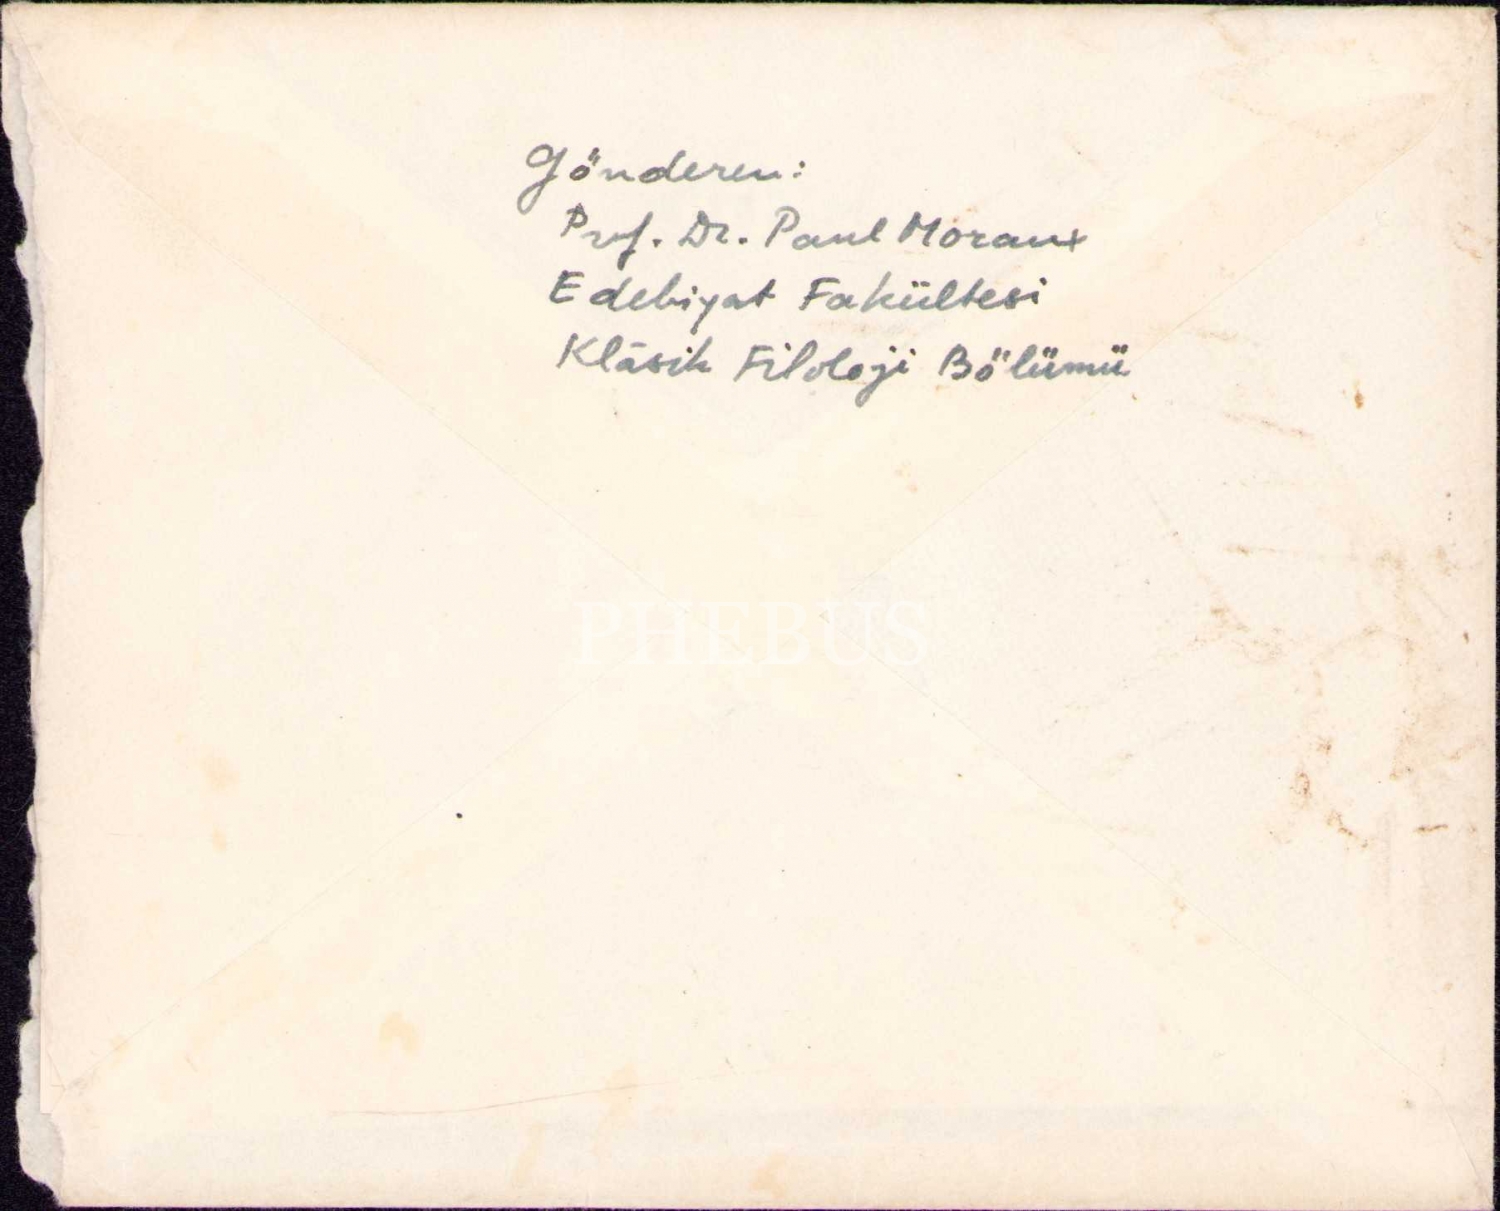 Gönderen:
Prof. Dr. Paul Moraux
Edebiyat Fakültesi
Klâsik Filoloji Bölümü
PHEBUS